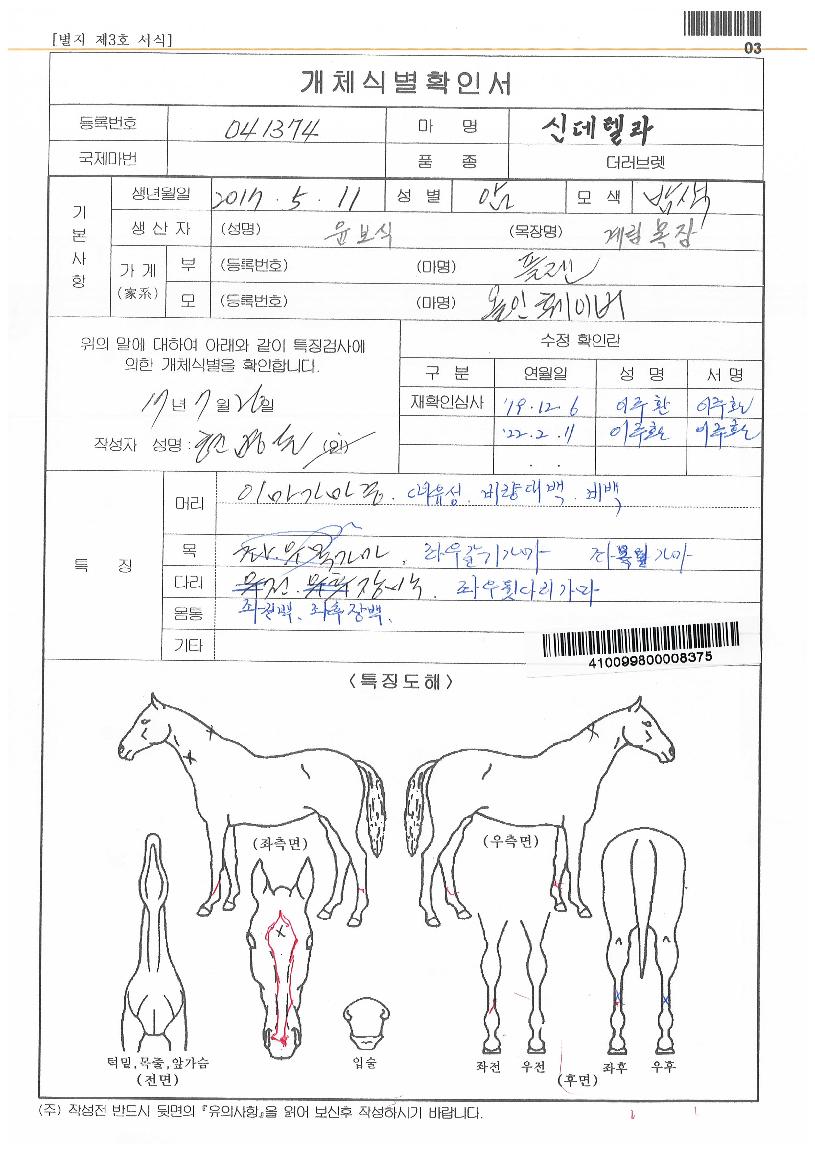 [별지 제3호 서식]
03
개체식별확인서
등록번호 041374 마 명 신데렐라
국제마번 품 종 더러브렛
기본사항
생년월일 2017. 5. 11 성 별 암 모 색 밤색
생 산 자 (성명) 윤보식 (목장명) 계림목장
가 계 (家系) 부 (등록번호) (마명) 플랜
모 (등록번호) (마명) 올인훼이버
위의 말에 대하여 아래와 같이 특징검사에
의한 개체식별을 확인합니다.
17년 7월 26일
작성자 성명 : (인)
수정 확인란
구 분 연월일 성 명 서 명
재확인심사 '19.12.6 이주환 이주환
'22.2.11 이주환 이주환
. .
특 징
머리 이마가마중. 대유성. 비량대백. 비백
목 좌우갈기가마
다리 좌우뒷다리가마
몸통 좌전백, 좌후장백.
기타
410099800008375
<특징도해>
(좌측면) (우측면)
턱밑,목줄,앞가슴
(전면)
입술
좌전 우전 좌후 우후
(후면)
(주) 작성전 반드시 뒷면의 『유의사항』을 읽어 보신후 작성하시기 바랍니다.